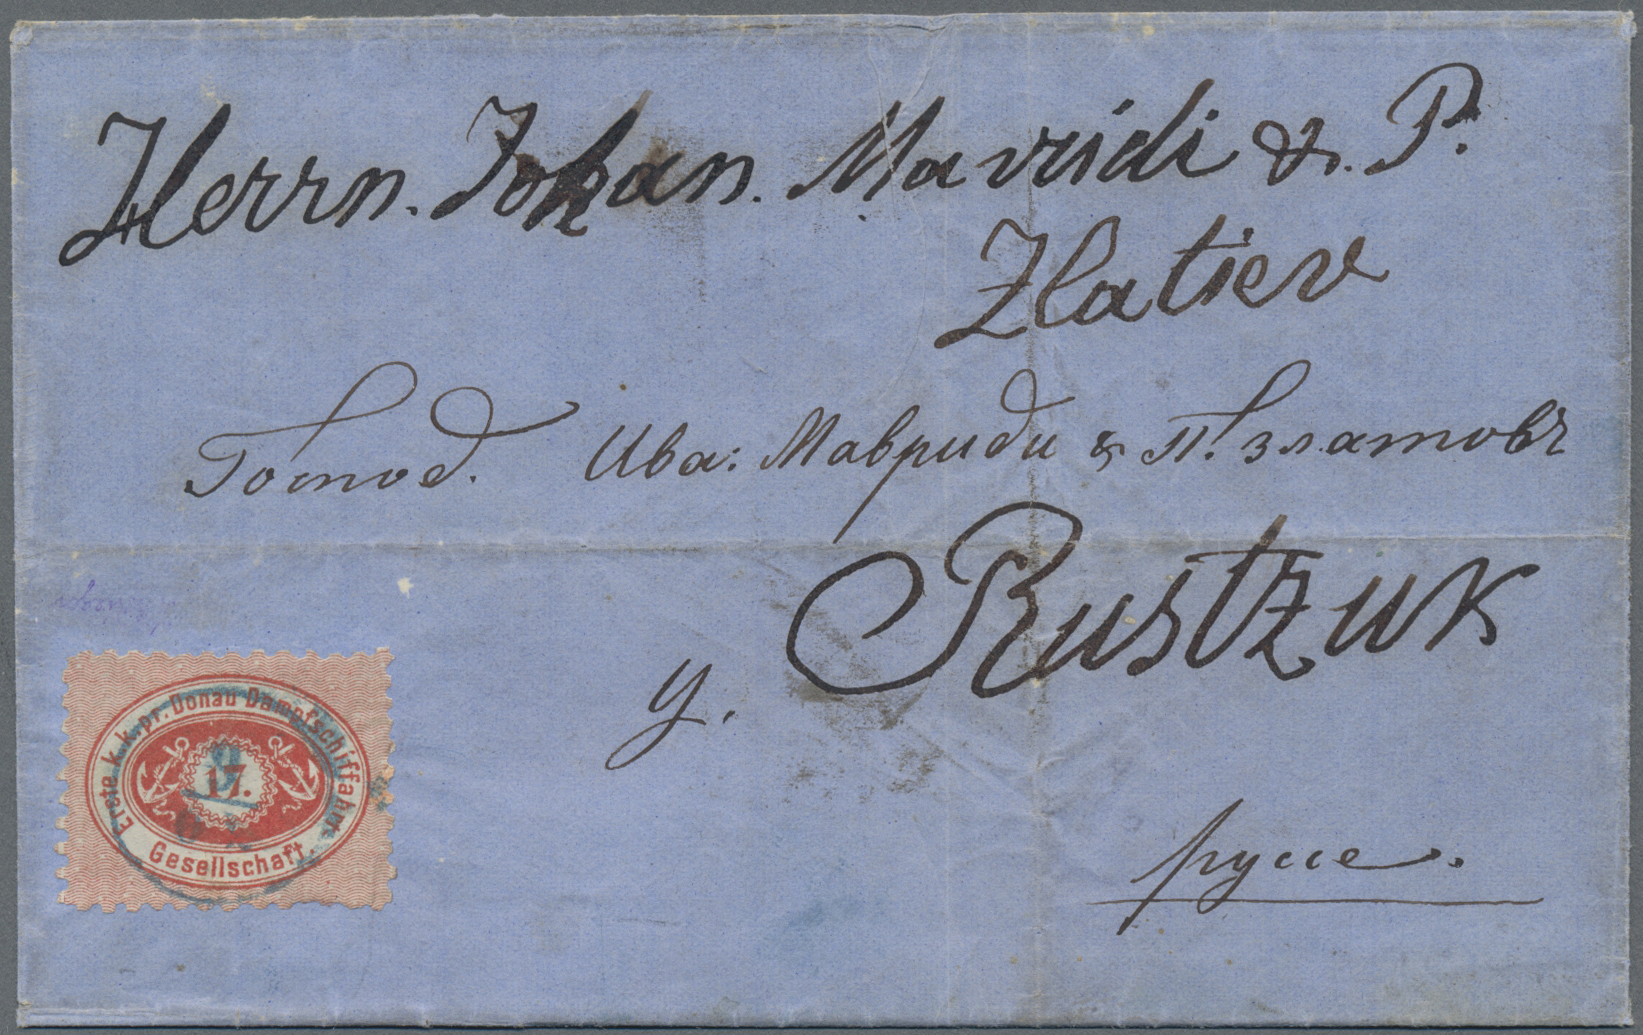 Herrn. Johan. Mavridi &. P.
Zlatiev
Господ. Ива: Мавриди & П. златовъ
Rustzuk
у.
русее.
Erste k. k. pr. Donau Dampfschiffahrt
17.
Gesellschaft.